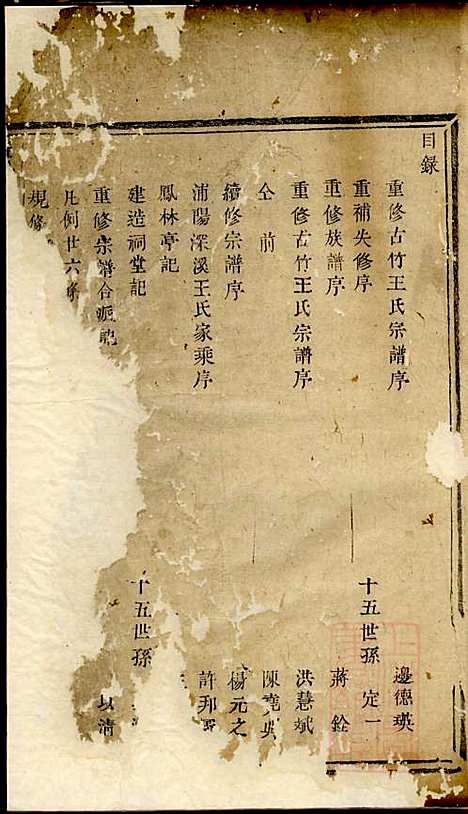 目録
重修古竹王氏宗譜序 邊德瑛
重補失修序 十五世孫 定一
重修族譜序 蔣銓
重修古竹王氏宗譜序 洪慧斌
仝前 陳
續修宗譜序 楊元之
浦陽深溪王氏家乘序 許邦
鳳林亭記
建造祠堂記 十五世孫
重修宗譜合派記 以清
凡例廿六條
規條